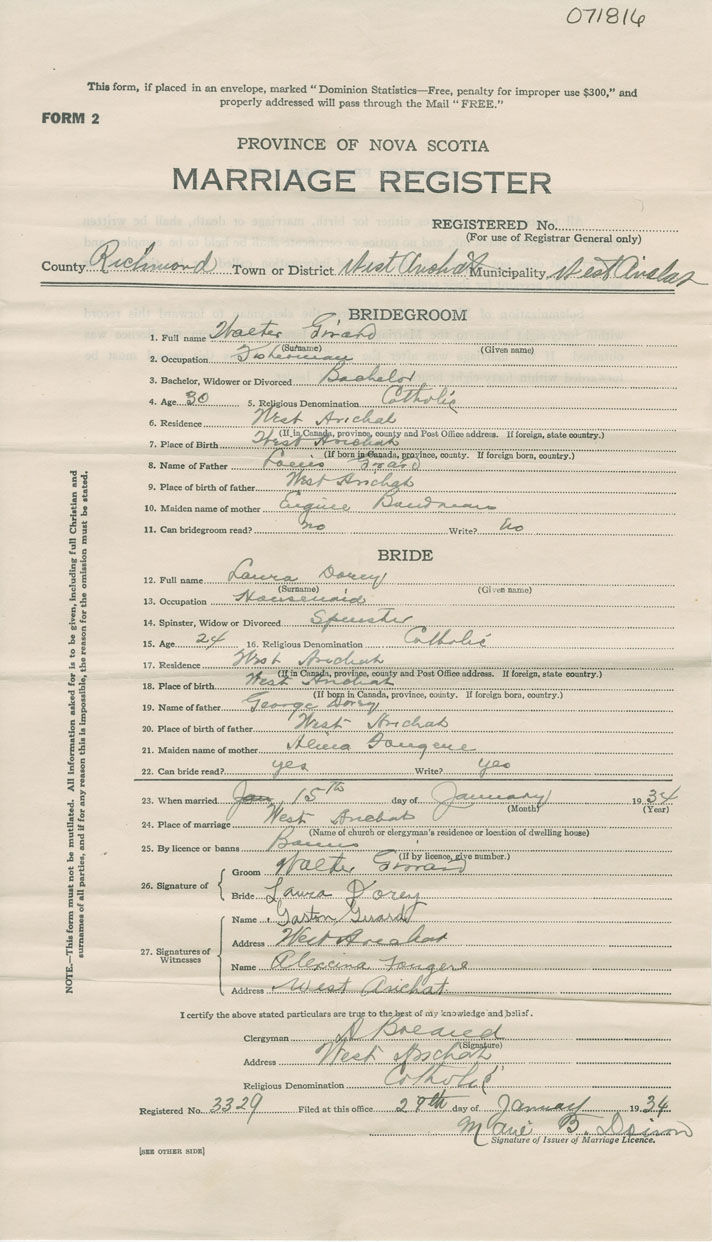 071816
This form, if placed in an envelope, marked "Dominion Statistics—Free, penalty for improper use $300," and
properly addressed will pass through the Mail "FREE."
FORM 2
PROVINCE OF NOVA SCOTIA
MARRIAGE REGISTER
REGISTERED No.
(For use of Registrar General only)
County Richmond Town or District West Arichat Municipality West Arichat
BRIDEGROOM
1. Full name Walter Girard
(Surname) (Given name)
2. Occupation Fisherman
3. Bachelor, Widower or Divorced Bachelor
4. Age 30 5. Religious Denomination Catholic
6. Residence West Arichat
(If in Canada, province, county and Post Office address. If foreign, state country.)
7. Place of Birth West Arichat
(If born in Canada, province, county. If foreign born, country.)
8. Name of Father Louis Girard
9. Place of birth of father West Arichat
10. Maiden name of mother Eugine
11. Can bridegroom read? no Write? no
BRIDE
12. Full name Laura Dorey
(Surname) (Given name)
13. Occupation Housemaid
14. Spinster, Widow or Divorced Spinster
15. Age 24 16. Religious Denomination Catholic
17. Residence West Arichat
(If in Canada, province, county and Post Office address. If foreign, state country.)
18. Place of birth West Arichat
(If born in Canada, province, county. If foreign born, country.)
19. Name of father George Dorey
20. Place of birth of father West Arichat
21. Maiden name of mother Alicia Fougere
22. Can bride read? yes Write? yes
23. When married Jan 15th day of January 1934
(Month) (Year)
24. Place of marriage West Arichat
(Name of church or clergyman's residence or location of dwelling house)
25. By licence or banns Banns
(If by licence, give number.)
26. Signature of
Groom Walter Girard
Bride Laura Dorey
27. Signatures of Witnesses
Name Gaston Girard
Address West Arichat
Name Alexina Fougere
Address West Arichat
I certify the above stated particulars are true to the best of my knowledge and belief.
Clergyman A
(Signature)
Address West Arichat
Religious Denomination Catholic
Registered No. 3329 Filed at this office 29th day of January 1934
Marie B.
Signature of Issuer of Marriage Licence.
[SEE OTHER SIDE]
NOTE.—This form must not be mutilated. All information asked for is to be given, including full Christian and
surnames of all parties, and if for any reason this is impossible, the reason for the omission must be stated.